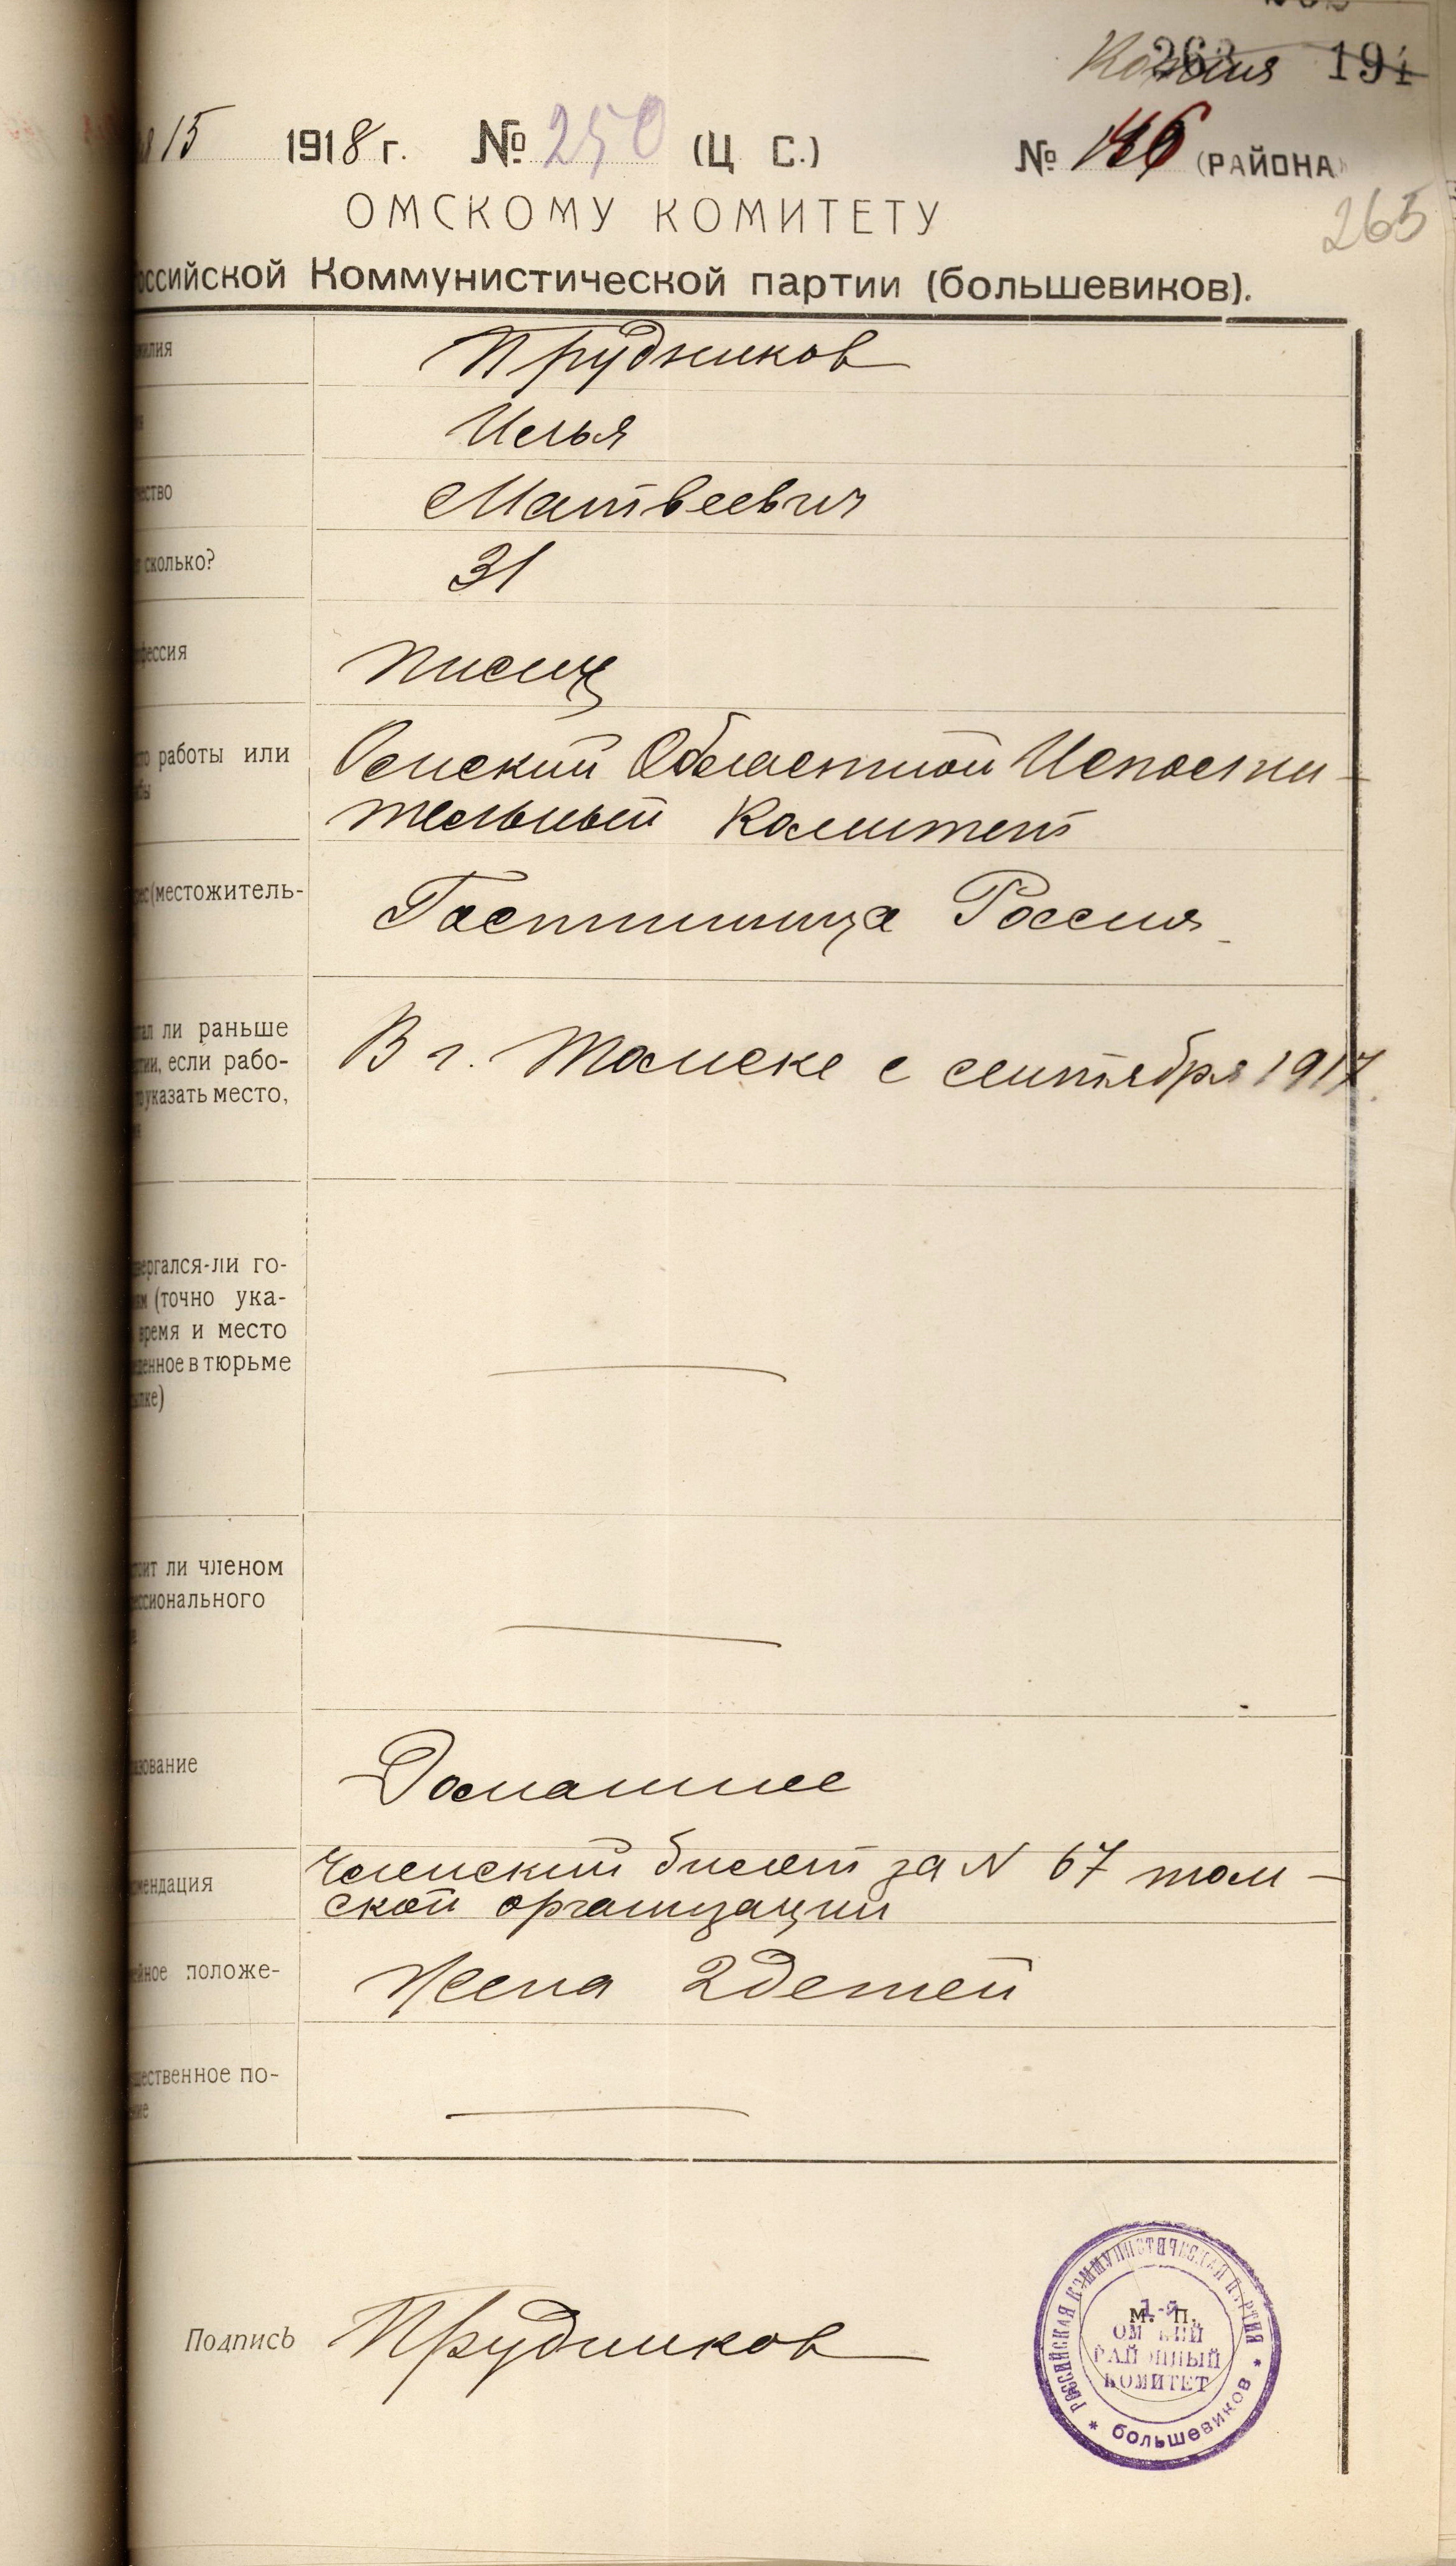 Копия 263 191
15 1918 г. № 250 (Ц С.) № 186 (РАЙОНА)
265
ОМСКОМУ КОМИТЕТУ
оссийской Коммунистической партии (большевиков).
милия Прудников
Илья
чество Матвеевич
сколько? 31
фессия писец
работы или Омский Областной Исполни-
бы тельный Комитет
рес (местожитель- Гостинница Россия
тал ли раньше В г. Томске с сентября 1917.
тии, если рабо-
указать место,
вергался-ли го-
ям (точно ука-
время и место
денное в тюрьме
ылке)
тоит ли членом
ессионального
азование Домашнее
омендация Членский билет за N 67 том-
ской организации
ейное положе- Жена 2 детей
щественное по-
ние
Подпись Прудников
РОССИЙСКАЯ КОММУНИСТИЧЕСКАЯ ПАРТИЯ
* большевиков *
1-й
М. П.
ОМ КИЙ
РАЙОННЫЙ
КОМИТЕТ